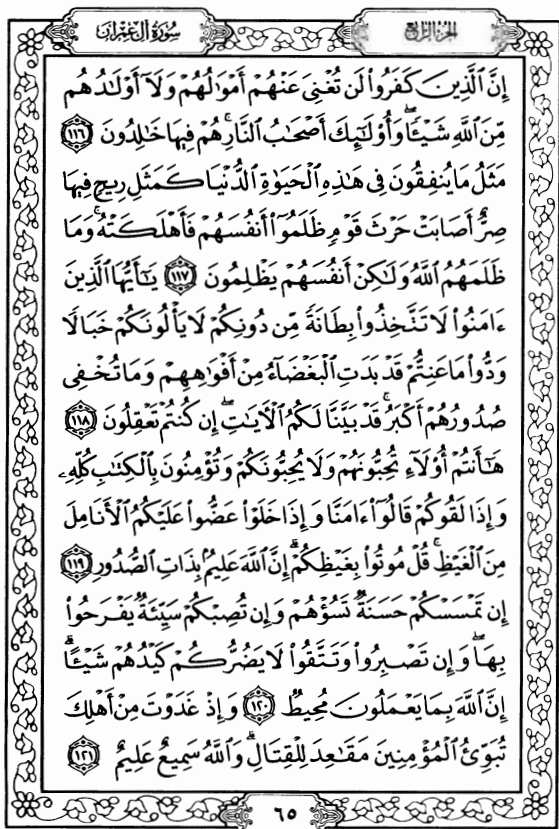 سُورَةُ آلِ عِمۡرَانَ
الجُزْءُ الرَّابِعُ
إِنَّ ٱلَّذِينَ كَفَرُواْ لَن تُغۡنِيَ عَنۡهُمۡ أَمۡوَٰلُهُمۡ وَلَآ أَوۡلَٰدُهُم
مِّنَ ٱللَّهِ شَيۡـٔٗاۖ وَأُوْلَٰٓئِكَ أَصۡحَٰبُ ٱلنَّارِۚ هُمۡ فِيهَا خَٰلِدُونَ ١١٦
مَثَلُ مَا يُنفِقُونَ فِي هَٰذِهِ ٱلۡحَيَوٰةِ ٱلدُّنۡيَا كَمَثَلِ رِيحٖ فِيهَا
صِرٌّ أَصَابَتۡ حَرۡثَ قَوۡمٖ ظَلَمُوٓاْ أَنفُسَهُمۡ فَأَهۡلَكَتۡهُۚ وَمَا
ظَلَمَهُمُ ٱللَّهُ وَلَٰكِنۡ أَنفُسَهُمۡ يَظۡلِمُونَ ١١٧ يَٰٓأَيُّهَا ٱلَّذِينَ
ءَامَنُواْ لَا تَتَّخِذُواْ بِطَانَةٗ مِّن دُونِكُمۡ لَا يَأۡلُونَكُمۡ خَبَالٗا
وَدُّواْ مَا عَنِتُّمۡ قَدۡ بَدَتِ ٱلۡبَغۡضَآءُ مِنۡ أَفۡوَٰهِهِمۡ وَمَا تُخۡفِي
صُدُورُهُمۡ أَكۡبَرُۚ قَدۡ بَيَّنَّا لَكُمُ ٱلۡأٓيَٰتِۖ إِن كُنتُمۡ تَعۡقِلُونَ ١١٨
هَٰٓأَنتُمۡ أُوْلَآءِ تُحِبُّونَهُمۡ وَلَا يُحِبُّونَكُمۡ وَتُؤۡمِنُونَ بِٱلۡكِتَٰبِ كُلِّهِۦ
وَإِذَا لَقُوكُمۡ قَالُوٓاْ ءَامَنَّا وَإِذَا خَلَوۡاْ عَضُّواْ عَلَيۡكُمُ ٱلۡأَنَامِلَ
مِنَ ٱلۡغَيۡظِۚ قُلۡ مُوتُواْ بِغَيۡظِكُمۡۗ إِنَّ ٱللَّهَ عَلِيمُۢ بِذَاتِ ٱلصُّدُورِ ١١٩
إِن تَمۡسَسۡكُمۡ حَسَنَةٞ تَسُؤۡهُمۡ وَإِن تُصِبۡكُمۡ سَيِّئَةٞ يَفۡرَحُواْ
بِهَاۖ وَإِن تَصۡبِرُواْ وَتَتَّقُواْ لَا يَضُرُّكُمۡ كَيۡدُهُمۡ شَيۡـًٔاۗ
إِنَّ ٱللَّهَ بِمَا يَعۡمَلُونَ مُحِيطٞ ١٢٠ وَإِذۡ غَدَوۡتَ مِنۡ أَهۡلِكَ
تُبَوِّئُ ٱلۡمُؤۡمِنِينَ مَقَٰعِدَ لِلۡقِتَالِۗ وَٱللَّهُ سَمِيعٌ عَلِيمٌ ١٢١
٦٥